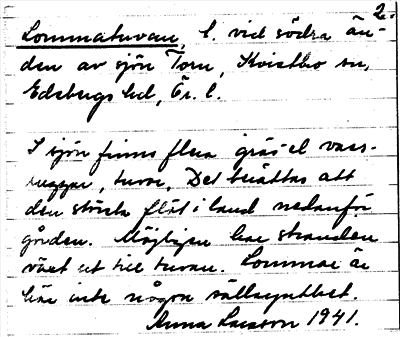 2.
Lommatuvan, l. vid södra än-
den av sjön Torn, Kvistbro sn,
Edsbergs hd, Ör. l.
I sjön finns flera gräs- el vass-
ruggar, tuvor. Det berättas att
den största flöt i land nedanför
gården. Möjligen har stranden
växt ut till tuvan. Lommar är
här inte någon sällsynthet.
Anna Larsson 1941.